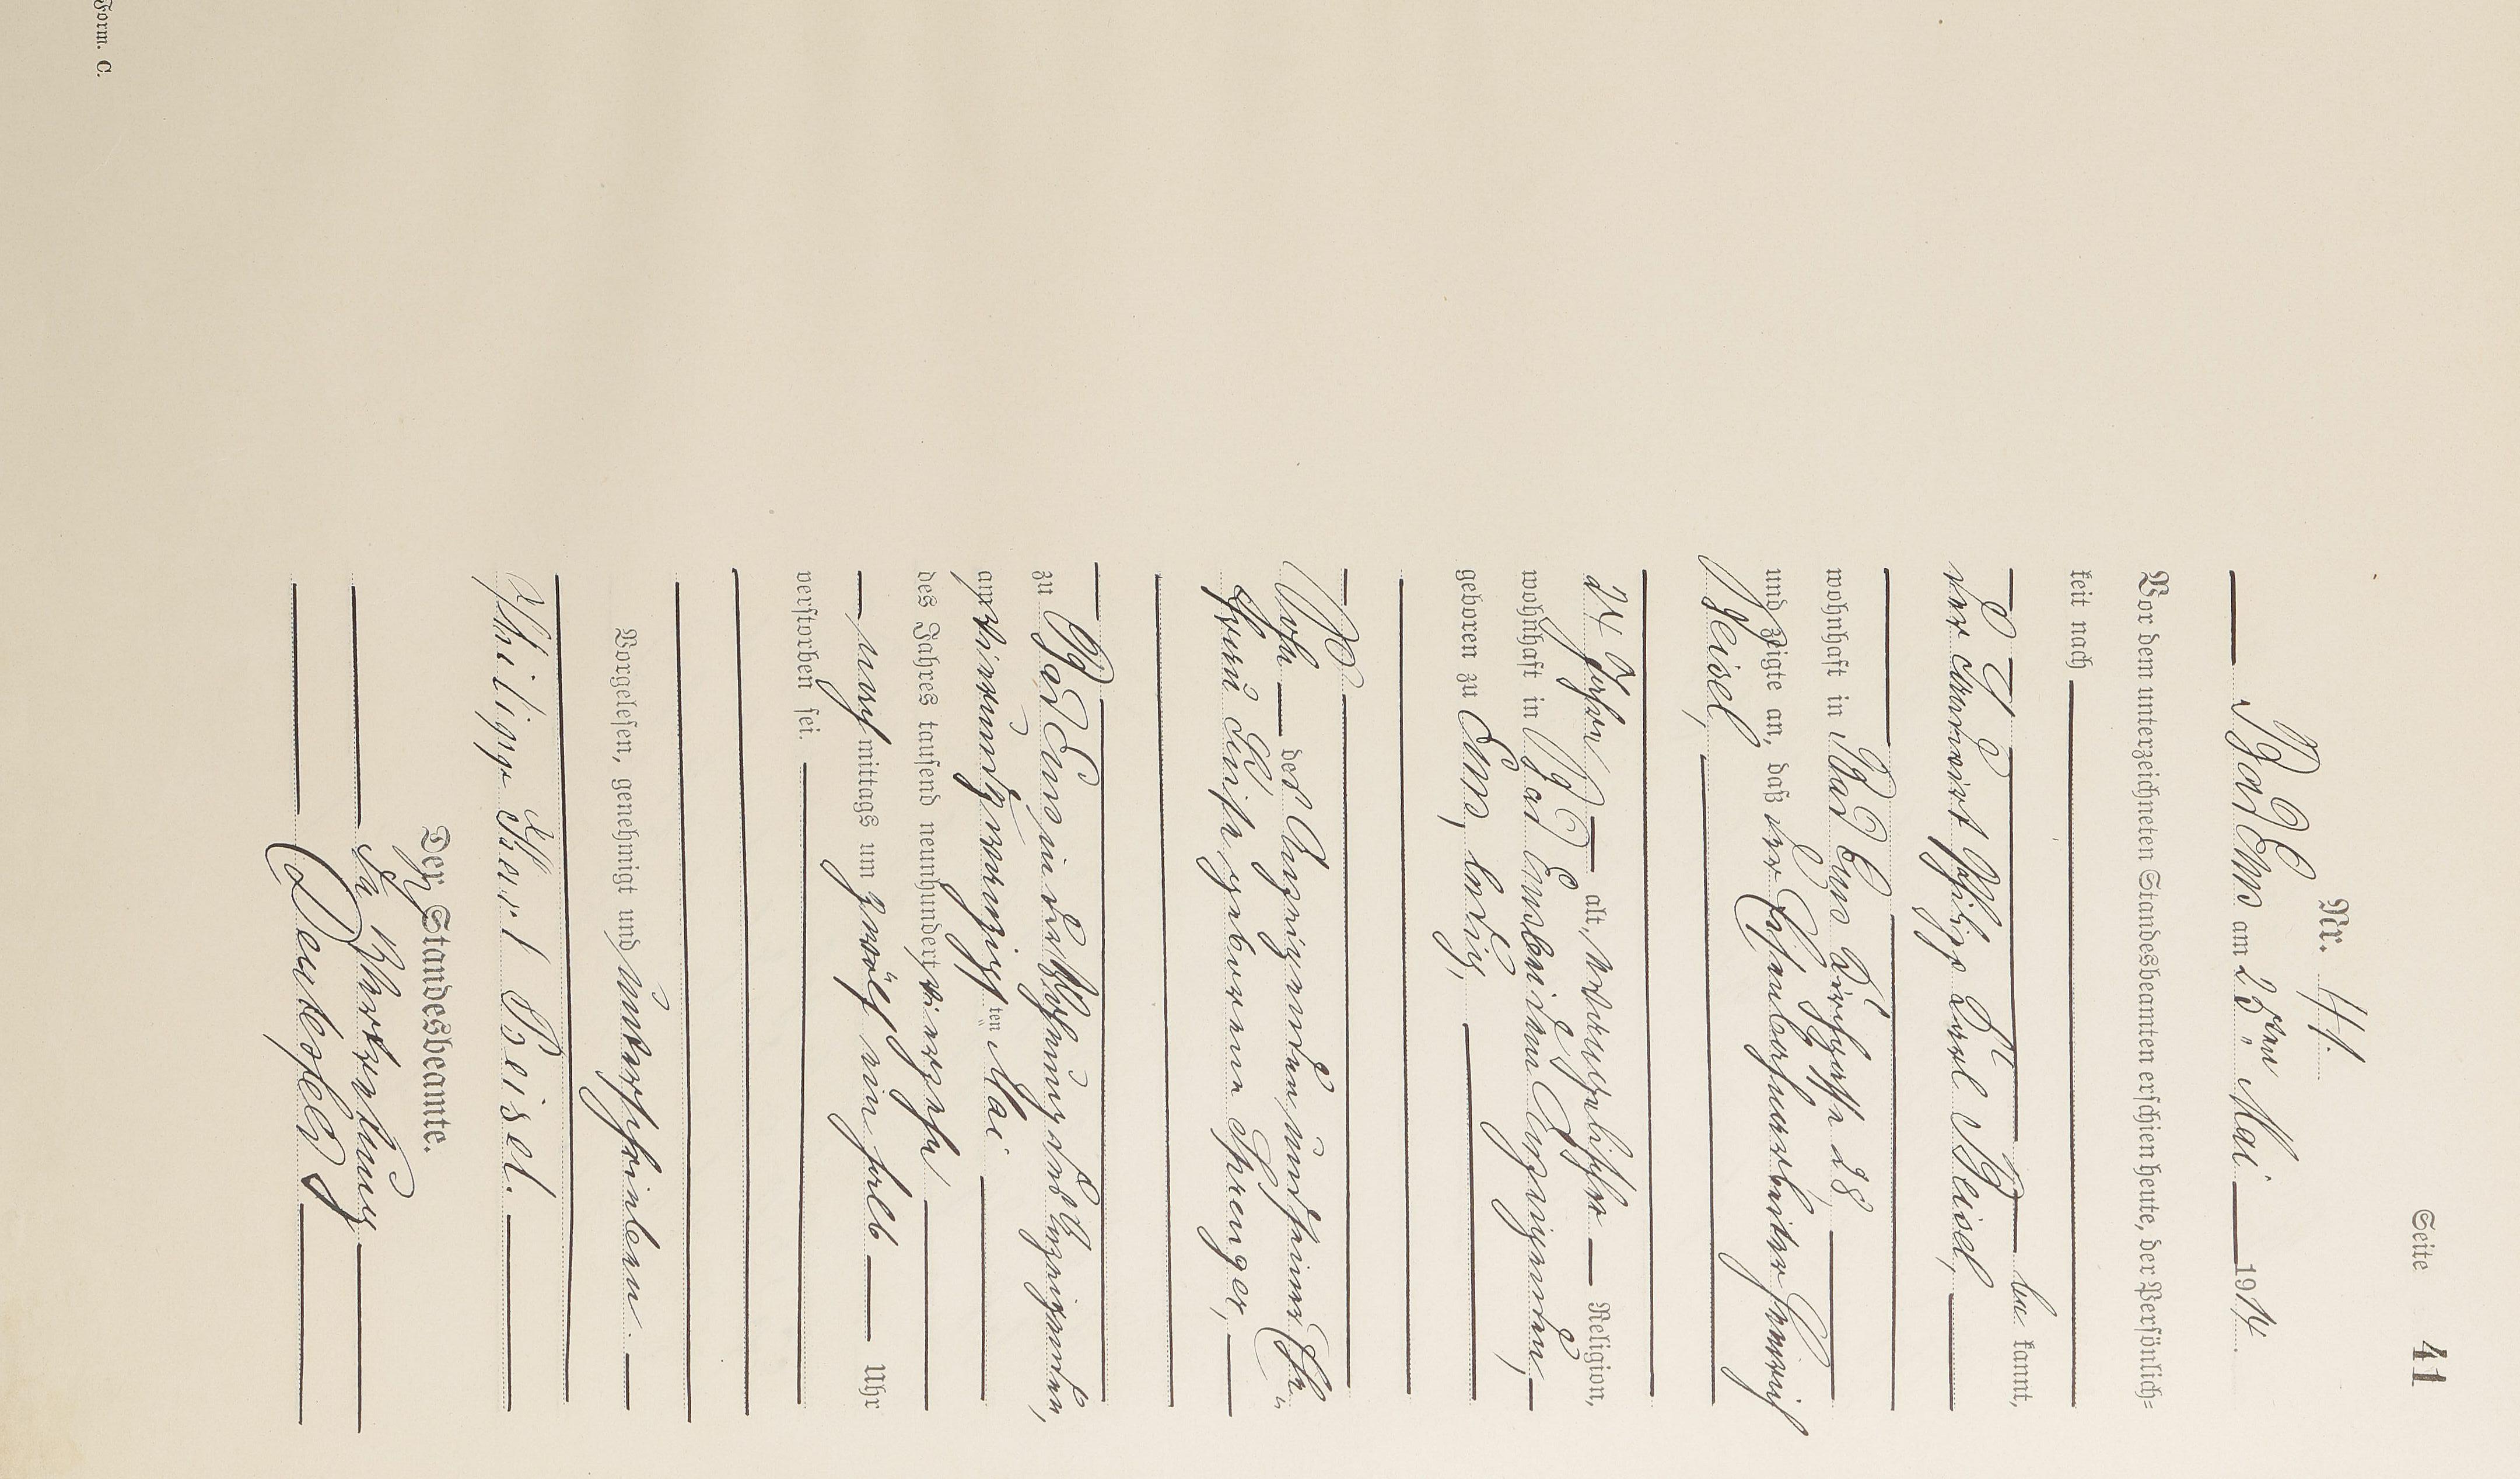 Seite 41
Nr. 41.
Bad Ems am 25ten Mai 1914.
Vor dem unterzeichneten Standesbeamten erschien heute, der Persönlich=
keit nach
be kannt,
der Landwirt Philipp Karl Beisel,
wohnhaft in Bad Ems
und zeigte an, daß der Eisenbahnarbeiter
Beisel,
24 Jahre alt, evangelischer Religion,
wohnhaft in Bad Ems bei dem Anzeigenden,
geboren zu Ems, ledig,
Sohn des Anzeigenden und seiner Ehe=
frau Luise geborene Sprenger,
zu Bad Ems in der Wohnung des Anzeigenden,
am vierundzwanzigsten Mai
des Jahres tausend neunhundert vierzehn
nachmittags um zwölf ein halb Uhr
verstorben sei.
Vorgelesen, genehmigt und unterschrieben.
Philipp Karl Beisel.
Der Standesbeamte.
In Vertretung
Form. C.